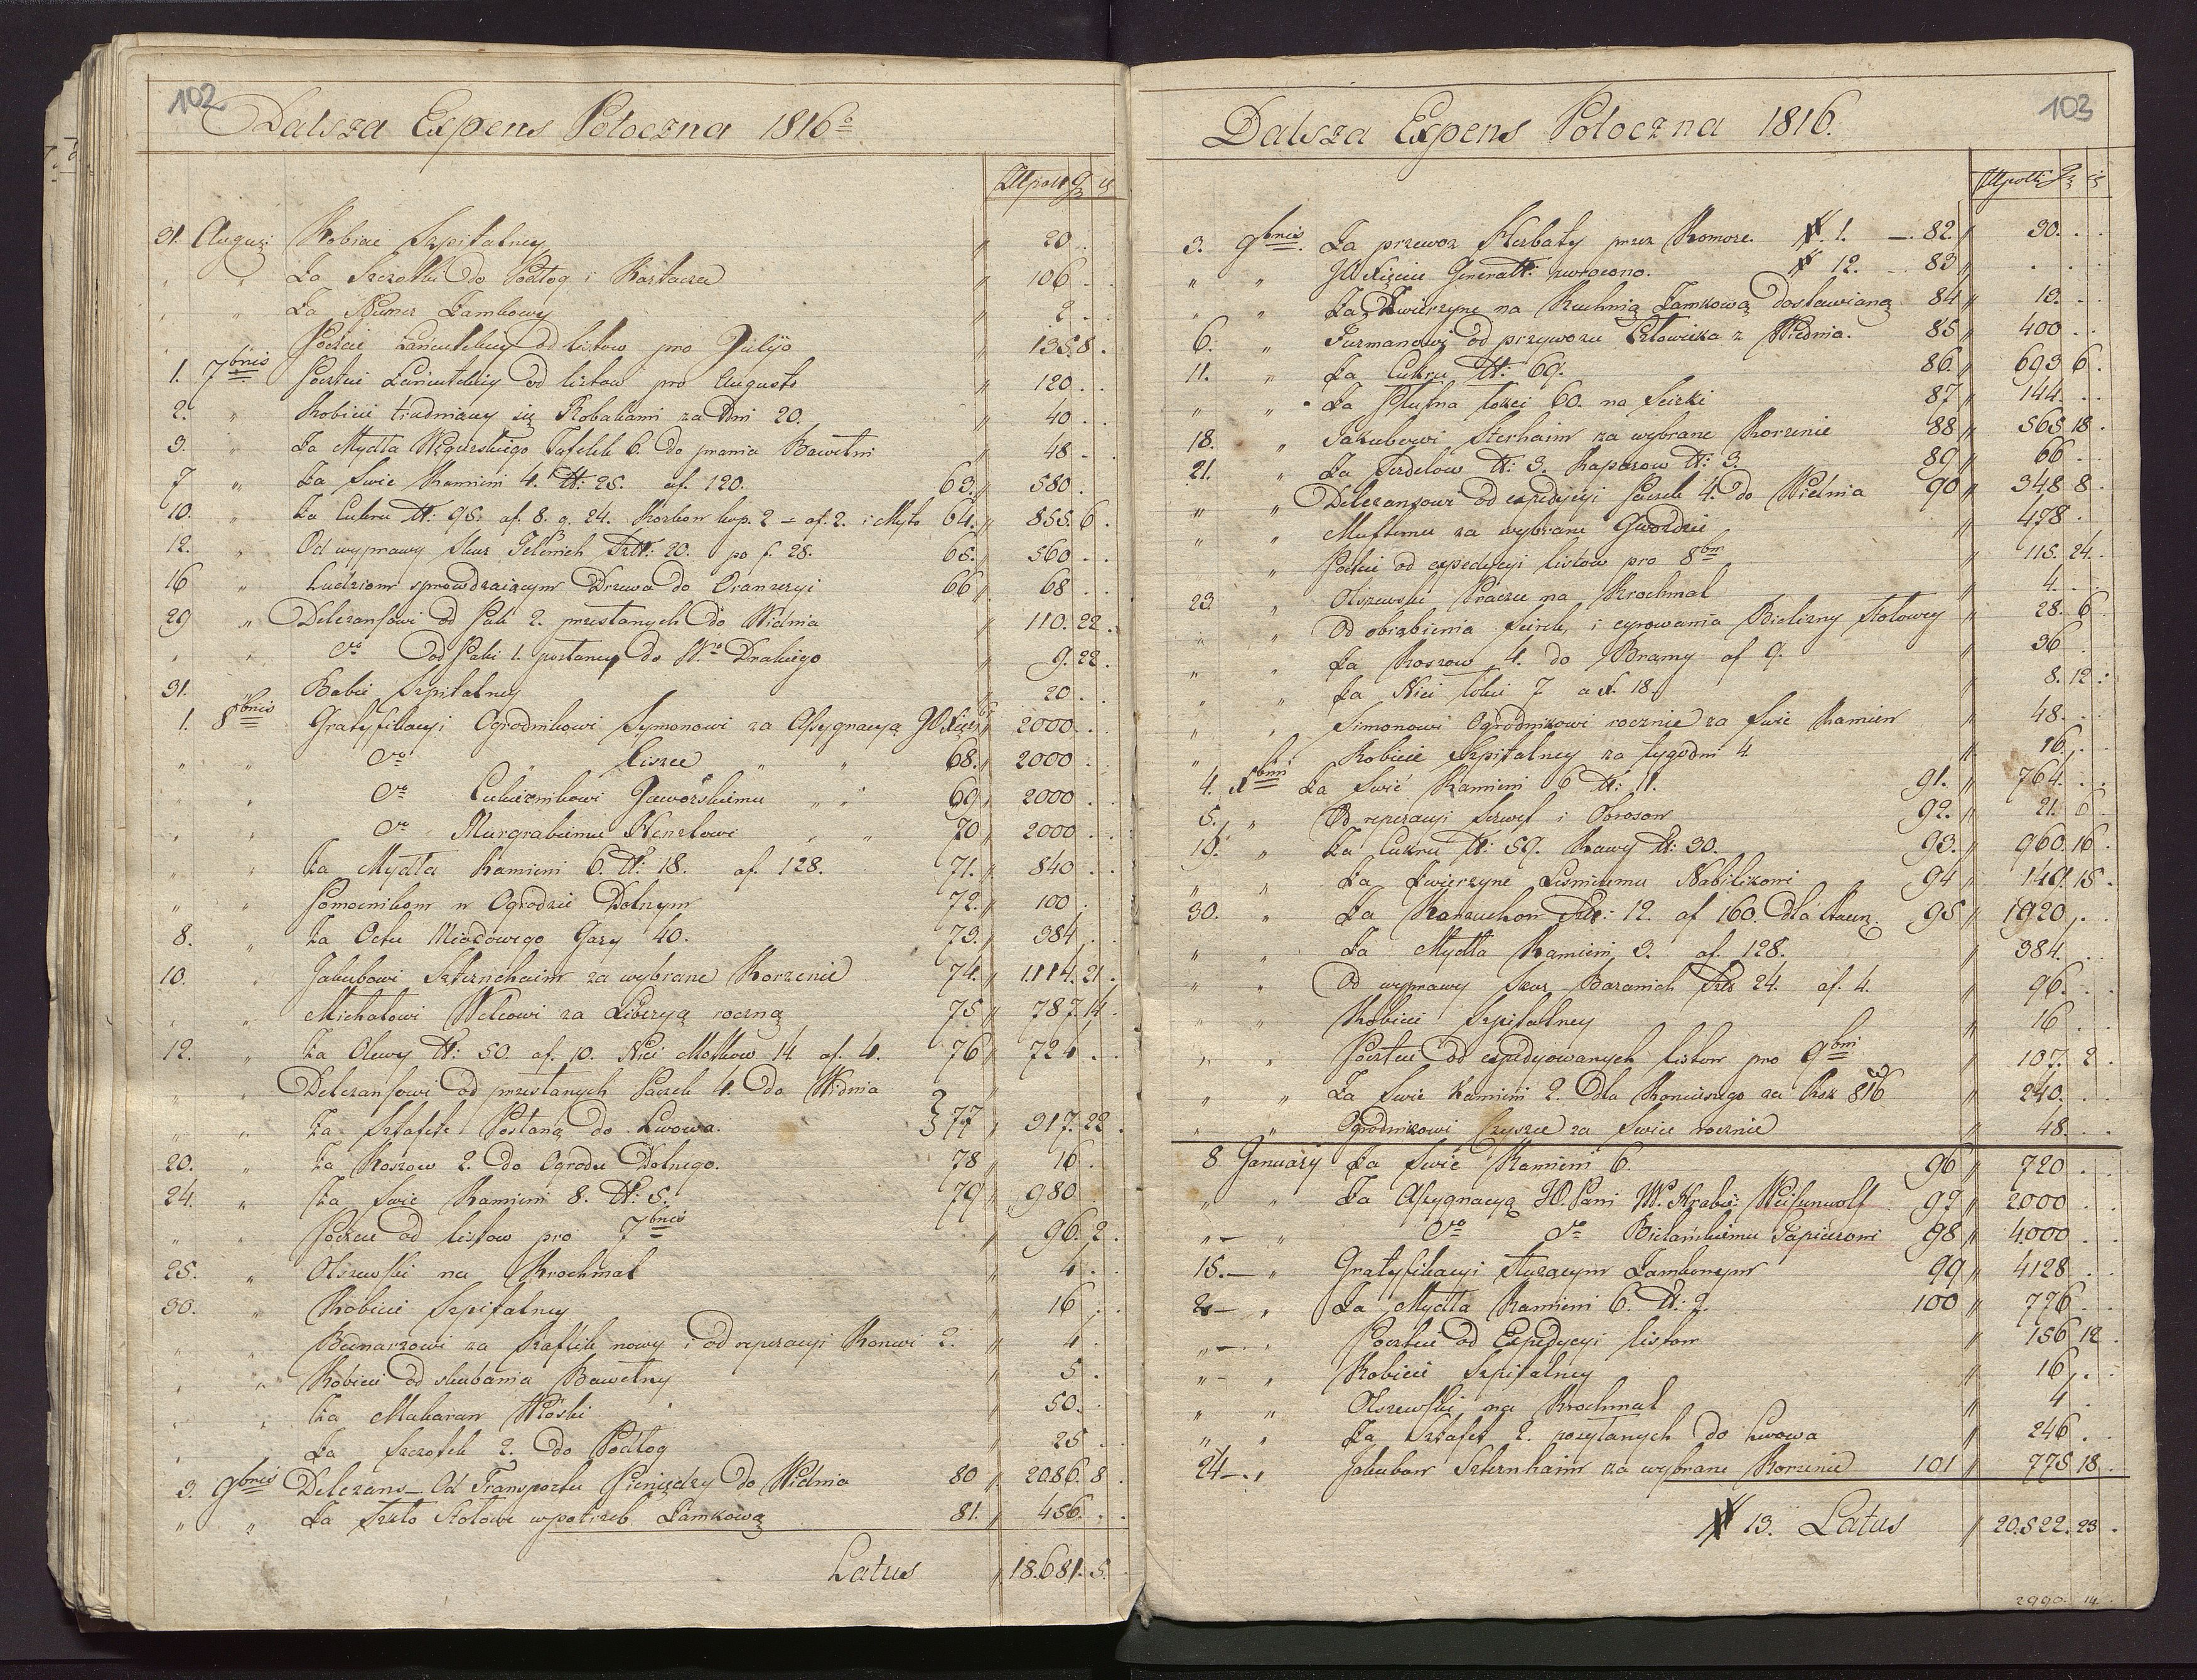 102
Dalsza Expens Potoczna 1816o
Złtpolt gr
31. Augusti Kobicie Szpitalney " 20 . .
" " Za Szczotki do Podłog i Kartacze " 106 . .
" " Za Numer Zamkowy " 2 . .
Poczcie Łancutskiey od listow pro Julijo " 135. 8 .
1. 7bris Poczcie Łancutskiey od listow pro Augusto " 120 . .
2. " Kobicie trudniącey się Robakami za Dni 20. " 40 . .
3. " Za Mydła Węgierskiego Tafelek 6. do prania Bawełni " 48 - .
7 " Za Swic Kamieni 4. tt: 25. af. 120. 63. " 580 .
10. " Za Cukru tt: 95. af. 8. g. 24. Korkow kop. 2 = af. 2. i Myto 64. " 855. 6 .
12. " Od wyprawy Skur Jelenich Sztt: 20. po f. 28. 65. " 560 . .
16 " Ludziom sprowadzaiącym Drzewa do Oranzeryi 66 " 68 . .
29 " Delezansowi od Pak 2. przesłanych do Widnia " 110. 22 .
" " dto od Paki 1. posłaney do Wgo Drakiego " 9. 22 .
31. Babie Szpitalney " 20 . .
1. 8bris Gratyfikacyi Ogrodnikowi Symonowi za Assygnacyą JOXięcia 67 " 2000 . .
" " dto " Liszce " " 68. " 2000 . .
" " dto Cukiernikowi Jaworskiemu " " 69 " 2000 . .
" " dto Murgrabiemu Henzlowi " " 70 " 2000 . .
" " Za Mydła Kamieni 6. tt: 18. af. 128. 71. " 840 . .
" " Pomocnikom w Ogrodzie Dolnym 72. " 100 .
8. " Za Octu Miodowego Garcy 40. 73. " 384 . .
10. " Jakubowi Szternchaim za wybrane Korzenie 74. " 1114. 21 .
" " Michałowi Welcowi za Liberyą roczną 75 " 787. 14 .
12. " Za Oliwy tt: 50. af. 10. Nici Motkow 14. af. 4. 76 " 724 . .
" " Delezansowi od przesłanych Paczek 4. do Widnia "
" " Za Sztafetę Posłaną do Lwowa. } 77 " 917. 22 .
20. " Za Koszow 2. do Ogrodu Dolnego. 78 " 16 .
24. " Za Swic Kamieni 8. tt: 5. 79 " 980
" " Poczcie od listow pro 7bris " 96. 2 .
25. " Olszewski na Krochmal " 4 . .
30. " Kobicie Szpitalney " 16 . .
" " Bednarzowi za Szaflik nowy i od reperacyi Konwi 2. " 4 .
" " Kobicie od skubania Bawełny " 5 .
" " Za Makaran Włoski " 50. .
" Za Szczotek 2. do Podłog " 25 . .
3. 9bris Delezans. Od Transportu Pieniędzy do Widnia 80 " 2086. 8 .
" " Za Szkło Stołowe w potrzeb Zamkową 81. " 456. . .
Latus " 18.681. 5.
103
Dalsza Expens Potoczna 1816.
Złtpolt gr
3. 9bris. Za przewoz Herbaty przez Komore. # 1. — 82. " 30. . .
" " JOXięciu Generałł: zwrocono. # 12. - 83 " . . .
" " Za Zwierzynę na Kuchnią Zamkową dostawianą 84 " 13. .
6. " Furmanowi od przywozu Człowieka z Wiednia. 85 " 400 . .
11. " Za Cukru tt: 69. 86. " 693 6 .
" " Za Płutna łokci 60. na Scirki 87 " 144. . .
18. " Jakubowi Sterhaim za wybrane Korzenie 88 " 565 18 .
21. " Za Serdelow tt: 3. Kaparow tt: 3. 89 " 66 . .
" " Delezansowi od expedycyi Paczek 4. do Wiednia 90 " 348 8 .
" " Muftemu za wybrane Gwozdzie " 478 .
" Poczcie od expedycyi listow pro 8bri " 115. 24.
23. " Olszewski Praczce na Krochmal " 4. .
" " Od obrąbienia Scirek, i cyrowania Bielizny Stołowey " 28. 6
" " Za Koszow 4. do Bramy af 9. " 36
" " Za Nici łokci 7 a x. 18 " 8. 12 .
" " Simonowi Ogrodnikowi rocznie za Swic Kamien " 48. . .
" " Kobicie Szpitalney za tygodni 4 " 16. . .
4. Xbris Za Swic Kamieni 6 tt: 11. 91. " 764. . .
5. " Od reperacyi Serwet i Obrosow 92. " 21. 6
10. " Za Cukru tt: 59. Kawy tt: 30. 93. " 960. 16 .
" " Za Zwierzynę Lesniemu Nabilikowi 94 " 149. 15 .
30. " Za Kozuchow Szt: 12. af 160. dla Staien. 95 " 1920 . .
" " Za Mydła Kamieni 3. af. 128. " 384. . .
" " Od wyprawy Skor Baranich Szt 24. af. 4. " 96. . .
" " Kobicie Szpitalney " 16 . .
" " Poczcie od expedyowanych listow pro 9bri " 107. 2 .
" " Za Swic Kamieni 2. dla Koniusznego za Rok 816 " 240. . .
" " Ogrodnikowi Lyszce za Swice rocznie " 48. . .
8 January Za Swic Kamieni 6. 96 " 720 . .
" " Za Assygnacyą JO. Pani W. Hrabi: Weisenwolf 97 " 2000 . .
" — " dto dto Bielańskiemu Papierowi 98 " 4000 . .
15. — " Gratyfikacyi słuzącym Zamkowym 99 " 4128 . .
2 — " Za Mydła Kamieni 6. tt: 2. 100 " 776 . .
" — " Poczcie od Expedycyi listow " 156 12 .
" — " Kobicie Szpitalney " 16 . .
" " Olszewski na Krochmal " 4 .
" " Za Sztafet 2. posyłanych do Lwowa " 246 . .
24 — " Jakubow Szternhaim za wybrane Korzenie 101 " 775 18 .
# 13. Latus " 20.522. 23 .
2990. 14.